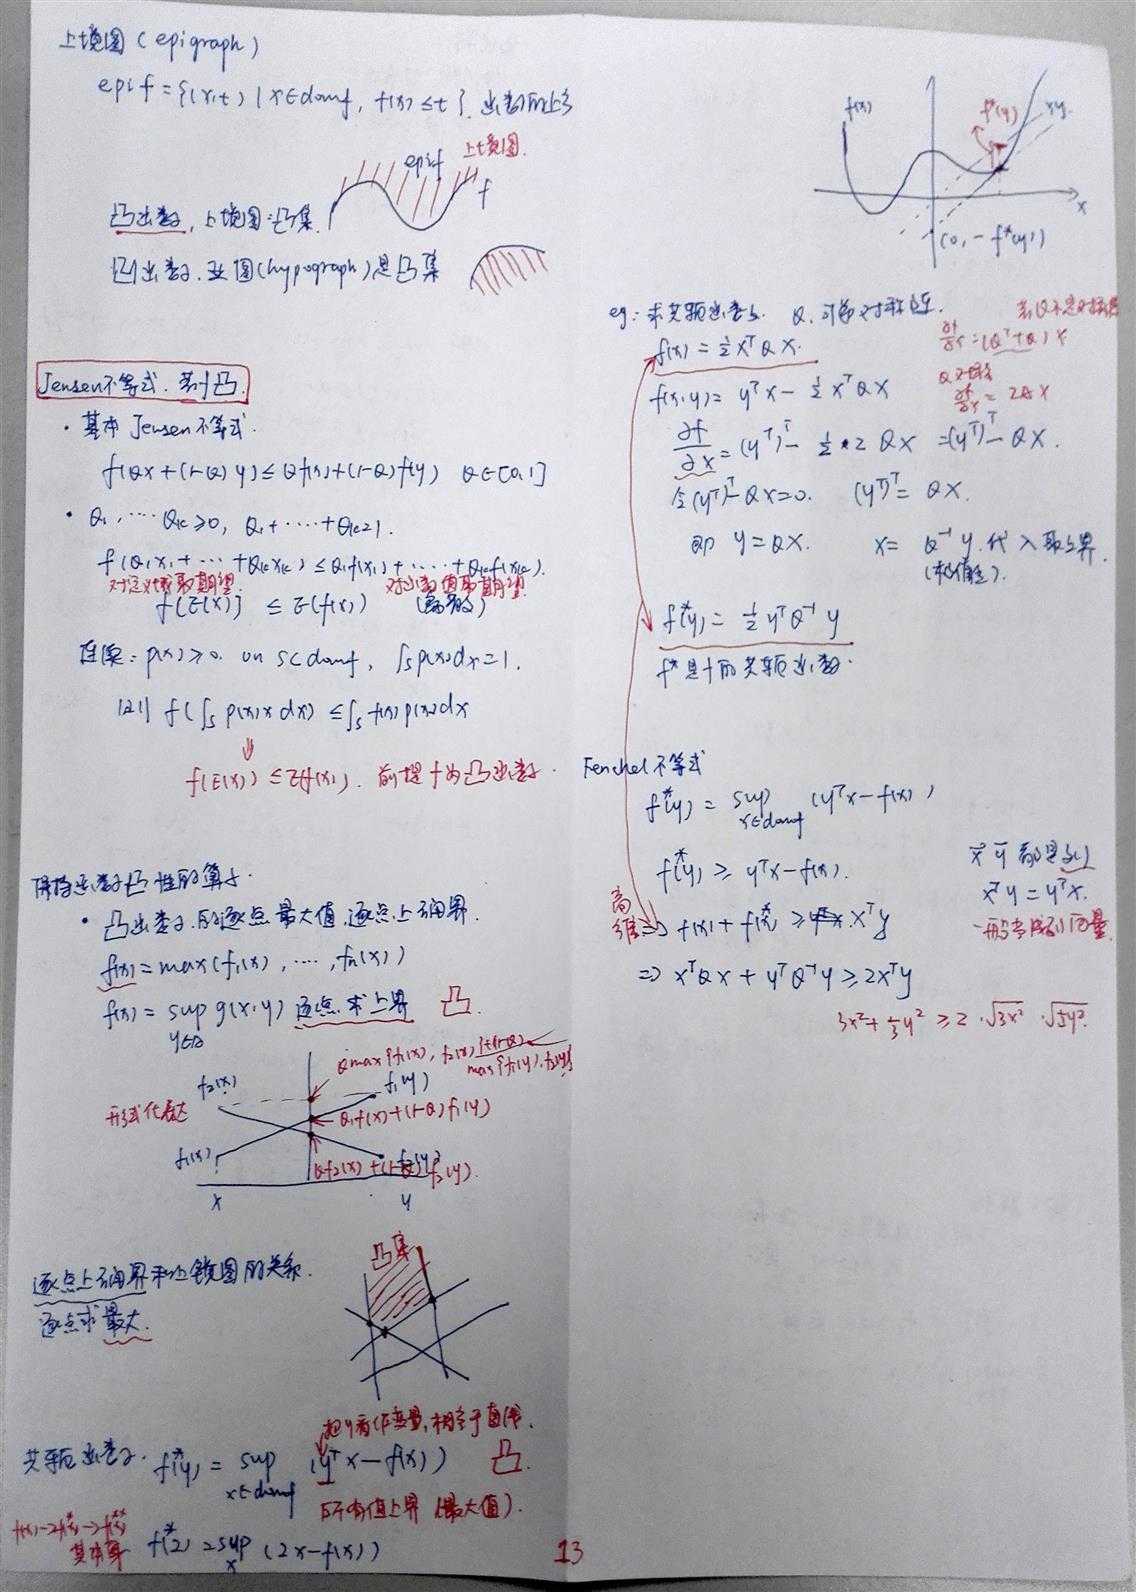 上境图 (epigraph)
epi f = {(x,t) | x∈domf, f(x) ≤ t}. 函数的上方
epif 上境图
f
凸函数, 上境图=凸集.
凹函数. 亚图(hypograph)是凸集
Jensen不等式. 若f凸
· 基本 Jensen 不等式.
f(θx+(1-θ)y) ≤ θf(x)+(1-θ)f(y) θ∈[0,1]
· θ1, ···· θk ≥ 0, θ1+····+θk=1.
f(θ1x1+···+θkxk) ≤ θ1f(x1)+····+θkf(xk).
对定义域取期望 对函数值取期望
f(E(x)) ≤ E(f(x)) (离散)
连续: p(x) ≥ 0. on S⊂domf, ∫s p(x)dx=1.
则 f(∫s p(x)x dx) ≤ ∫s f(x)p(x)dx
⇓
f(E(x)) ≤ Ef(x). 前提f为凸函数.
保持函数凸性的算子.
· 凸函数的逐点最大值.逐点上确界.
f(x)=max(f1(x), ····, fn(x))
f(x) = sup g(x,y) 逐点求上界 凸.
y∈A
θmax{f1(x), f2(x)}+(1-θ)
max{f1(y),f2(y)}
f2(x) f1(y)
形式化表达
θf1(x)+(1-θ)f1(y)
f1(x) f2(y)
θf2(x)+(1-θ)f2(y).
x y
逐点上确界和上镜图的关系.
逐点求最大.
凸集
把y看作变量,相当于直线.
共轭函数. f*(y) = sup (yᵀx-f(x)) 凸.
x∈domf
所有值上界 (最大值).
f(x)→f*(x)→f**(x)
其本身
f*(2)=sup (2x-f(x))
x
13
f(x) f*(y) xy
x
(0, -f*(y))
eg: 求共轭函数. Q. 可逆对称阵.
若Q不是对称阵
f(x) = ½xᵀQx.
∂f/∂x=(Qᵀ+Q)x
Q对称
∂f/∂x = 2Qx
f(x,y)= yᵀx - ½xᵀQx
∂f/∂x = (yᵀ)ᵀ - ½*2 Qx = (yᵀ)ᵀ - Qx.
令(yᵀ)ᵀ-Qx=0. (yᵀ)ᵀ = Qx.
即 y=Qx. x= Q⁻¹y. 代入取上界.
(极值).
f*(y) = ½yᵀQ⁻¹y
f*是f的共轭函数.
Fenchel不等式
f*(y) = sup (yᵀx-f(x))
x∈domf
f*(y) ≥ yᵀx-f(x).
x⃗ y⃗ 都是列
xᵀy=yᵀx.
一般当成列向量.
高维
⇒ f(x)+f*(y) ≥ xᵀy
⇒ xᵀQx+yᵀQ⁻¹y ≥ 2xᵀy
3x²+⅓y² ≥ 2·√3x²·√⅓y².